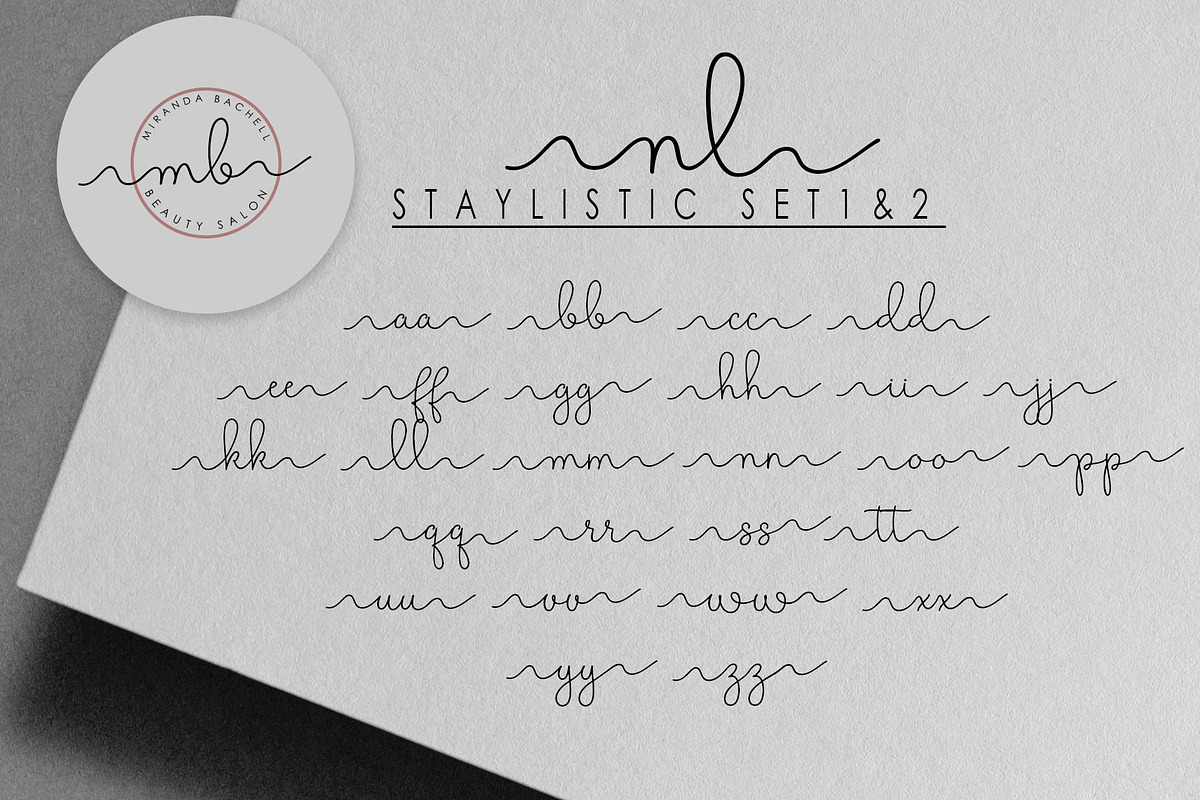 MIRANDA BACHELL
mb
BEAUTY SALON
nl
STAYLISTIC SET1&2
aa bb cc dd
ee ff gg hh ii jj
kk ll mm nn oo pp
qq rr ss tt
uu vv ww xx
yy zz